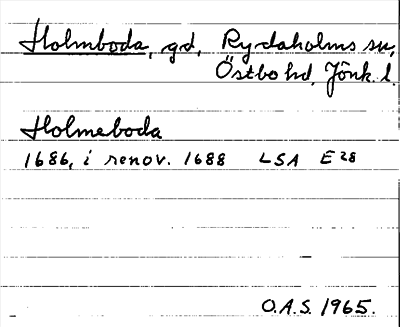 Holmboda, gd, Rydaholms sn,
Östbo hd, Jönk. l.
Holmeboda
1686, i renov. 1688 LSA E28
O.A.S. 1965.